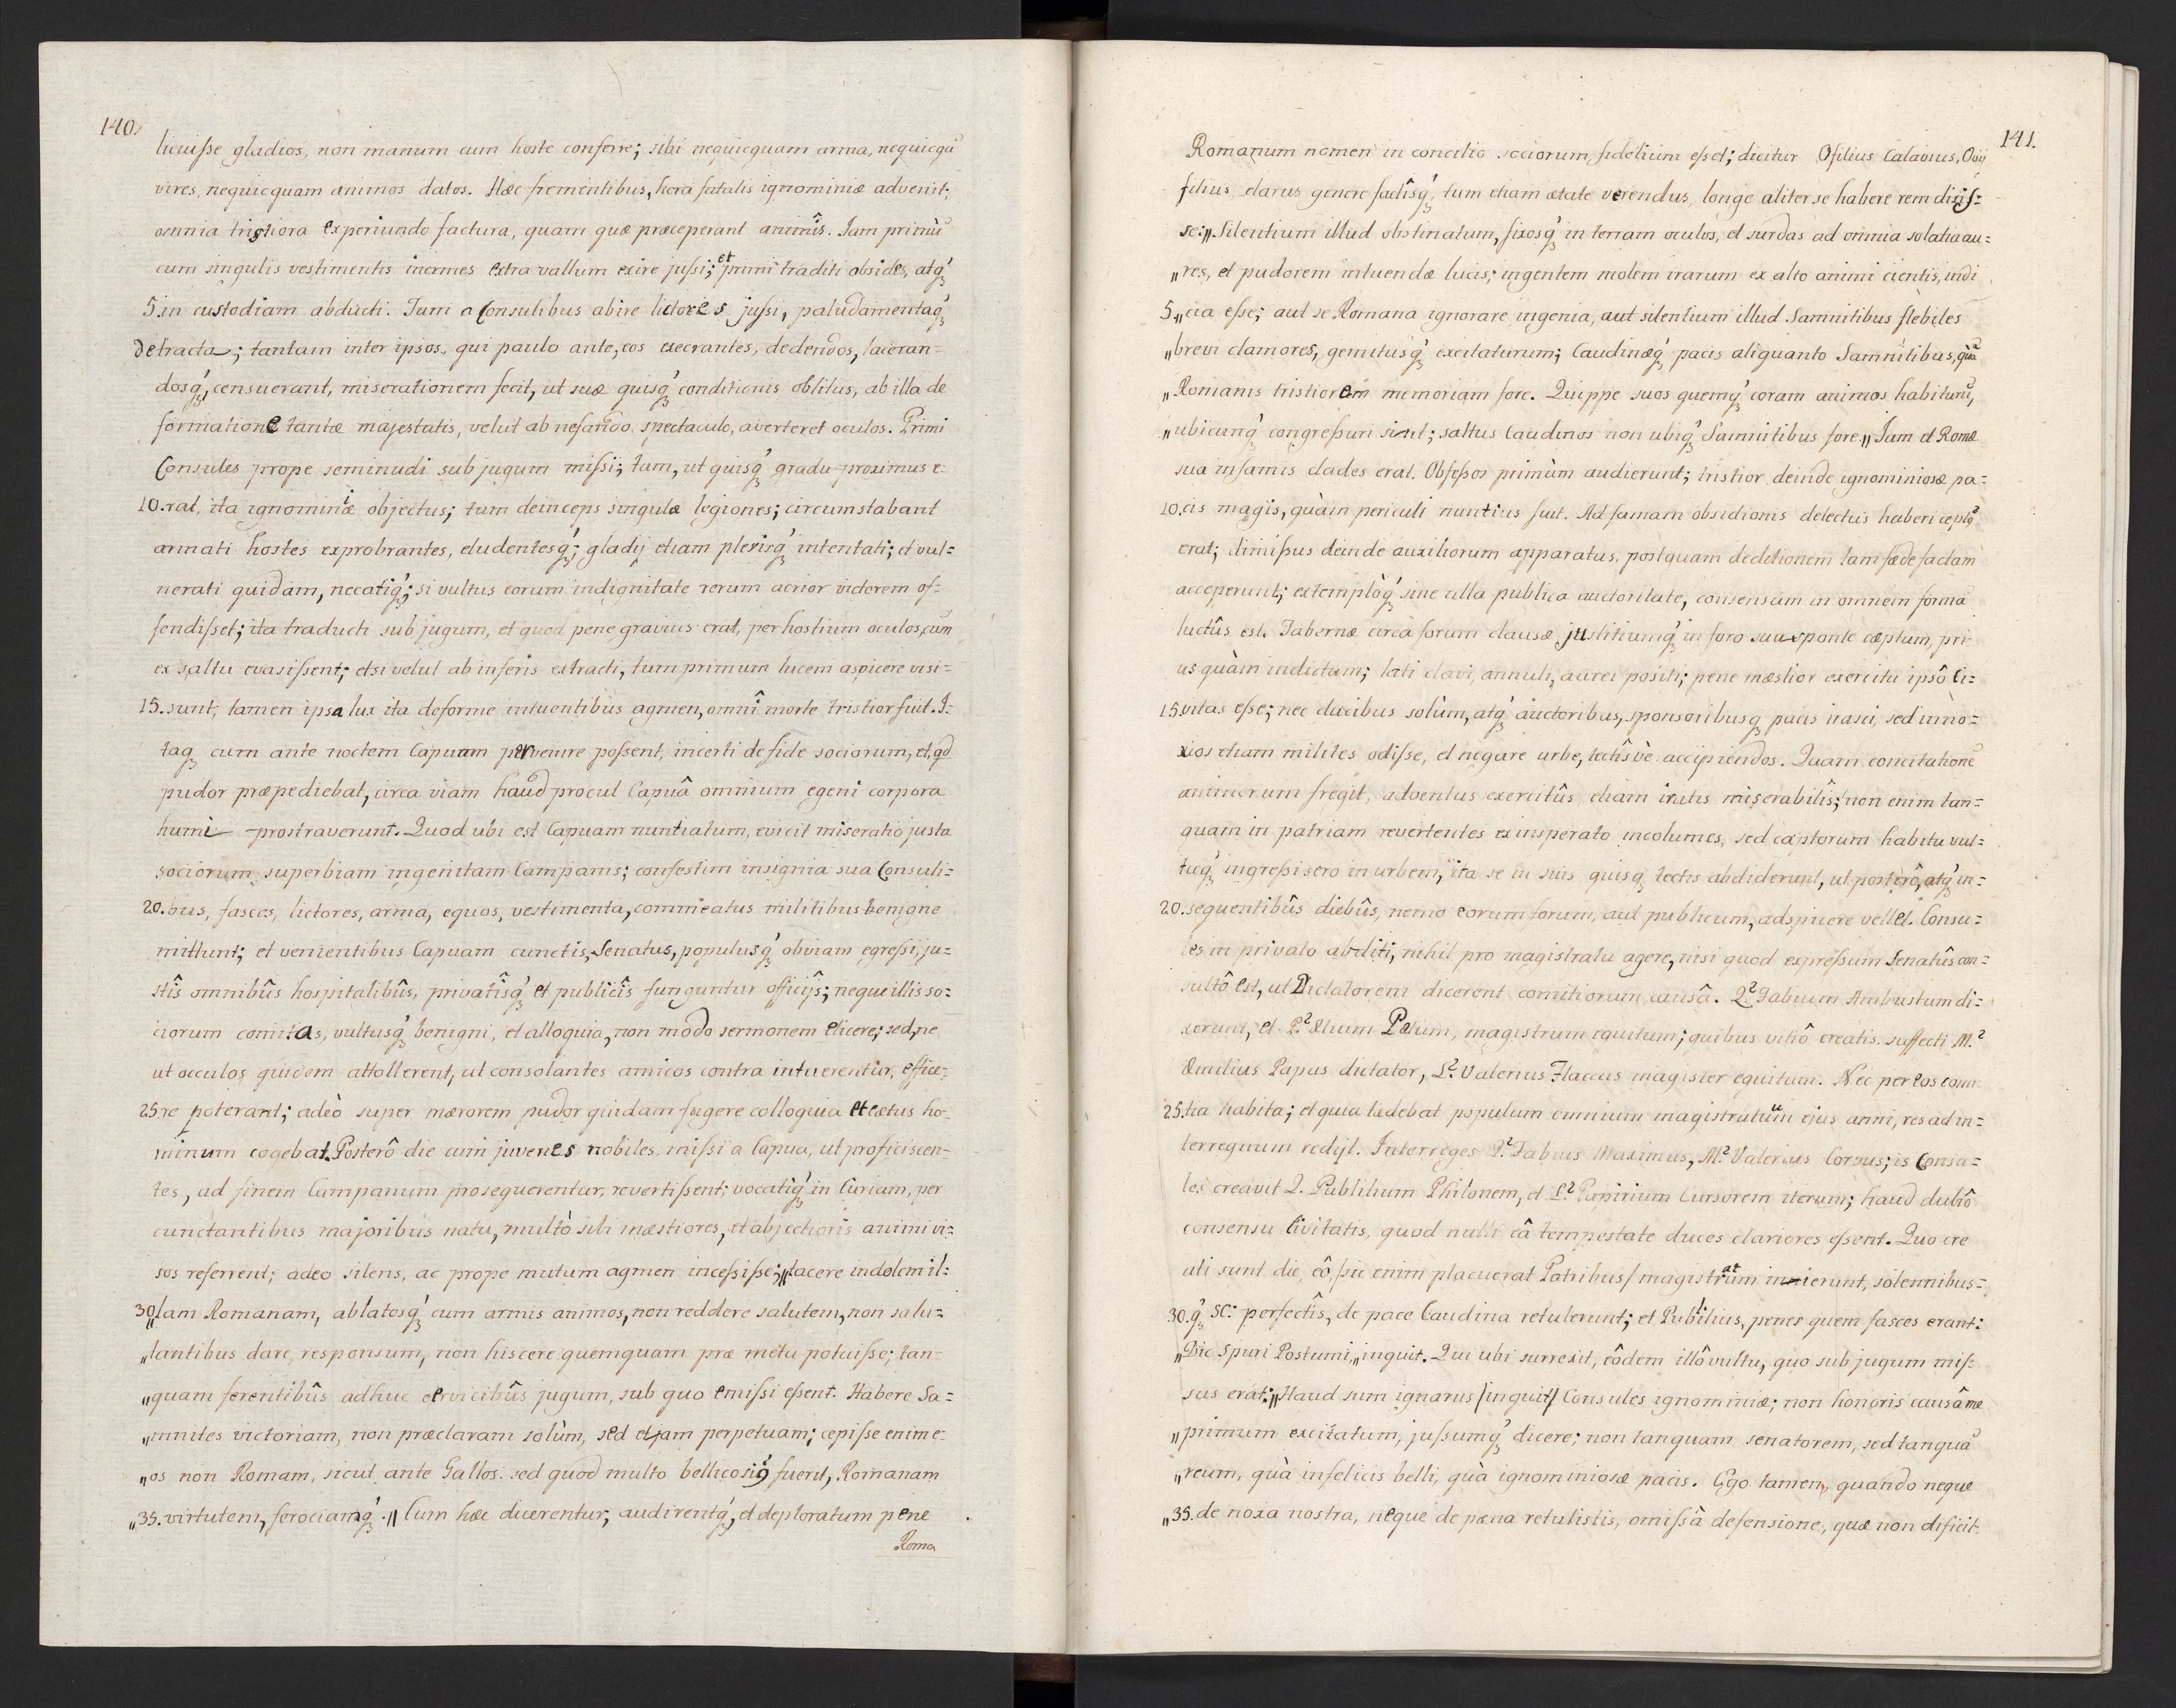 140.
licuiſse gladios, non manum cum hoste conferre; sibi nequicquam arma, nequicquā
vires, nequicquam animos datos. Hæc frementibus, hora fatalis ignominiæ advenit;
omnia tristiora experiundo factura, quam quæ præceperant animîs. Jam primū
cum singulis vestimentis inermes extra vallum exire juſsi; et primi traditi obsides, atq́ꝫ
5. in custodiam abducti. Tum a Consulibus abire lictores juſsi, paludamentaq́ꝫ
detracta; tantam inter ipsos, qui paulo ante, eos execrantes, dedendos, laceran-
dosq́ꝫ, censuerant, miserationem fecit, ut suæ quisq́ꝫ conditionis oblitus, ab illa de
formatione tantæ majestatis, velut ab nefando spectaculo, averteret oculos. Primi
Consules prope seminudi sub jugum miſsi; tum, ut quisq́ꝫ gradu proximus e-
10. rat, ita ignominiæ objectus; tum deinceps singulæ legiones; circumstabant
armati hostes exprobrantes, eludentesq́ꝫ; gladij etiam plerisq́ꝫ intentati; et vul=
nerati quidam, necatiq́ꝫ; si vultus eorum indignitate rerum acrior victorem of-
fendiſset; ita traducti sub jugum, et quod pene gravius erat, per hostium oculos, cum
ex saltu evasiſsent; etsi velut ab inferis extracti, tum primum lucem aspicere visi=
15. sunt; tamen ipsa lux ita deforme intuentibus agmen, omnî morte tristior fuit. I-
taqꝫ cum ante noctem Capuam pervenire poſsent, incerti de fide sociorum, et qd
pudor præpediebat, circa viam haud procul Capuâ omnium egeni corpora
humi prostraverunt. Quod ubi est Capuam nuntiatum, evicit miseratio justa
sociorum, superbiam ingenitam Campanis; confestim insignia sua Consuli=
20. bus, fasces, lictores, arma, equos, vestimenta, commeatus militibus benigne
mittunt; et venientibus Capuam cunctis, Senatus, populusq́ꝫ obviam egreſsi, ju=
stîs omnibûs hospitalibûs, privatîsq́ꝫ et publicîs funguntur officijs; neque illis so=
ciorum comitas, vultusq́ꝫ benigni, et alloquia, non modo sermonem elicere; sed, ne
ut occulos quidem attollerent, ut consolantes amicos contra intuerentur, effice=
25. re poterant; adeò super mærorem pudor quidam fugere colloquia et cætus ho-
minum cogebat. Posterô die cum juvenes nobiles, miſsi a Capua, ut proficiscen-
tes, ad finem Campanum prosequerentur, revertiſsent; vocatiq́ꝫ in Curiam, per
cunctantibus majoribus natu, multò sibi mæstiores, et abjectioris animi vi=
sos referrent; adeo silens, ac prope mutum agmen inceſsiſse; „Jacere indolem il=
30. „lam Romanam, ablatosq́ꝫ cum armis animos, non reddere salutem, non salu=
„tantibus dare responsum, non hiscere quemquam præ metu potuiſse; tan-
„quam ferentibûs adhuc cervicibûs jugum, sub quo emiſsi eſsent. Habere Sa=
„mnites victoriam, non præclaram solùm, sed etjam perpetuam; cepiſse enim e-
„os non Romam, sicut ante Gallos: sed quod multo bellicosi9 fuerit, Romanam
„35. virtutem, ferociamq́ꝫ.„ Cum hæc dicerentur, audirentq́ꝫ, et deploratum pene
Roma
141.
Romanum nomen in concilio sociorum fidelium eſset; dicitur Ofilius Calavius, Ovii
filius, clarus genere factîsq́ꝫ, tum etiam ætate verendus, longe aliter se habere rem dixiſ=
se: „Silentium illud obstinatum, fixosq́ꝫ in terram oculos, et surdas ad omnia solatia au=
„res, et pudorem intuendæ lucis; ingentem molem irarum ex alto animi cientis, indi
5. „cia eſse; aut se Romana ignorare ingenia, aut silentium illud Samnitibus flebiles
„brevi clamores, gemitusq́ꝫ excitaturum; Caudinæq́ꝫ pacis aliquanto Samnitibus, quā
„Romanis tristiorem memoriam fore. Quippe suos quemq́ꝫ coram animos habiturū,
„ubicunq́ꝫ congreſsuri sint; saltus Caudinos non ubiq́ꝫ Samnitibus fore„ Jam et Romæ
sua infamis clades erat. Obſeſsos primùm audierunt; tristior deinde ignominiosæ pa=
10. cis magis, quàm periculi nuntius fuit. Ad famam obsidionis delectus haberi cept9
erat; dimiſsus deinde auxiliorum apparatus, postquam deditionem tam fæde factam
acceperunt; extemplòq́ꝫ sine ulla publica auctoritate, consensum in omnem formā
luctûs est. Tabernæ circa forum clausæ justitiumq́ꝫ in foro sua sponte cæptum, pri-
us quàm indictum; lati clavi, annuli, aurei positi; pene mæstior exercitu ipsô Ci=
15. vitas eſse; nec ducibus solùm, atq́ꝫ auctoribus, sponsoribusqꝫ pacis irasci, sed inno=
xios etiam milites odiſse, et negare urbe, tectîs vè accipiendos. Quam concitationē
animorum fregit, adventus exercitûs etiam iratis miserabilîs; non enim tan=
quam in patriam revertentes ex insperato incolumes, sed captorum habitu vul=
tuq́ꝫ ingreſsi sero in urbem, ita se in suis quisqꝫ tectis abdiderunt, ut posterô, atq́ꝫ in=
20. sequentibûs diebûs, nemo eorum forum, aut publicum, adspicere vellet. Consu=
les in privato abditi, nihil pro magistratu agere, nisi quod expreſsum Senatûs con=
sultô est, ut Dictatorem dicerent comitiorum causâ. Q.² Fabium Ambustum di=
xerunt, et P.² Ælium Pætum, magistrum equitum; quibus vitiô creatis suffecti M.²
Æmilius Papus dictator, L.² Valerius Flaccus magister equitum. Nec per eos comi
25. tia habita; et quia tædebat populum omnium magistratuum ejus anni, res ad in=
terregnum redijt. Interreges Q.² Fabius Maximus, M.² Valerius Corvus; is Consu=
les creavit Q. Publilium Philonem, et L.² Papirium Cursorem iterum; haud dubiô
consensu Civitatis, quod nulli eâ tempestate duces clariores eſsent. Quo cre
ati sunt die, eô /sic enim placuerat Patribus/ magistratum inierunt, solennibus=
30. q́ꝫ SC: perfectîs, de pace Caudina retulerunt; et Publilius, penes quem fasces erant:
„Dic Spuri Postumi„ inquit. Qui ubi surrexit, eôdem illô vultu, quo sub jugum miſ-
sus erat: „Haud sum ignarus /inquit/ Consules ignominiæ; non honoris causâ me
„primum excitatum, juſsumq́ꝫ dicere; non tanquam senatorem, sed tanquā
„reum, quà infelicis belli, quà ignominiosæ pacis. Ego tamen, quando neque
„35. de noxa nostra, neque de pæna retulistis, omiſsâ defensione, quæ non dificil-